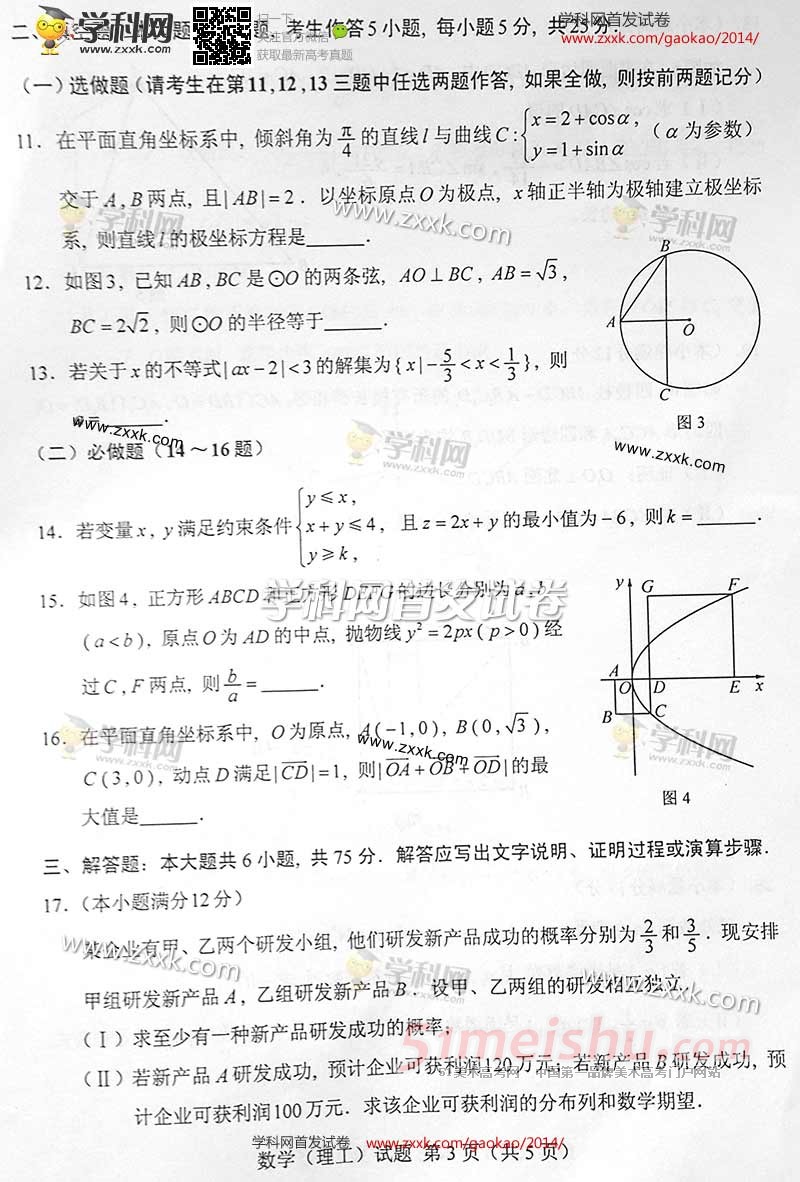 学科网 WWW.ZXXK.COM 扫一下 关注官方微信 获取最新高考真题 学科网首发试卷 www.zxxk.com/gaokao/2014/
考生作答5小题, 每小题5分, 共25分.
(一) 选做题 (请考生在第11, 12, 13三题中任选两题作答, 如果全做, 则按前两题记分)
11. 在平面直角坐标系中, 倾斜角为π/4的直线l与曲线C:{x=2+cosα, y=1+sinα (α为参数)
交于A, B两点, 且|AB|=2. 以坐标原点O为极点, x轴正半轴为极轴建立极坐标
系, 则直线l的极坐标方程是______.
12. 如图3, 已知AB, BC是⊙O的两条弦, AO⊥BC, AB=√3,
BC=2√2, 则⊙O的半径等于______.
13. 若关于x的不等式|ax-2|<3的解集为{x|-5/3<x<1/3}, 则
______.
B
A
O
C
图3
(二) 必做题 (14~16题)
14. 若变量x, y满足约束条件{y≤x, x+y≤4, y≥k, 且z=2x+y的最小值为-6, 则k=______.
15. 如图4, 正方形ABCD和正方形DEFG的边长分别为a, b
(a<b), 原点O为AD的中点, 抛物线y²=2px(p>0)经
过C, F两点, 则b/a=______.
16. 在平面直角坐标系中, O为原点, A(-1,0), B(0,√3),
C(3,0), 动点D满足|CD|=1, 则|OA+OB+OD|的最
大值是______.
y G F
A O D E x
B C
图4
三、解答题: 本大题共6小题, 共75分. 解答应写出文字说明、证明过程或演算步骤.
17. (本小题满分12分)
某企业有甲、乙两个研发小组, 他们研发新产品成功的概率分别为2/3和3/5. 现安排
甲组研发新产品A, 乙组研发新产品B. 设甲、乙两组的研发相互独立.
(Ⅰ) 求至少有一种新产品研发成功的概率;
(Ⅱ) 若新产品A研发成功, 预计企业可获利润120万元; 若新产品B研发成功, 预
计企业可获利润100万元. 求该企业可获利润的分布列和数学期望.
51meishu.com
51美术高考网 中国第一品牌美术高考门户网站
学科网首发试卷 www.zxxk.com/gaokao/2014/
数学 (理工) 试题 第3页 (共5页)